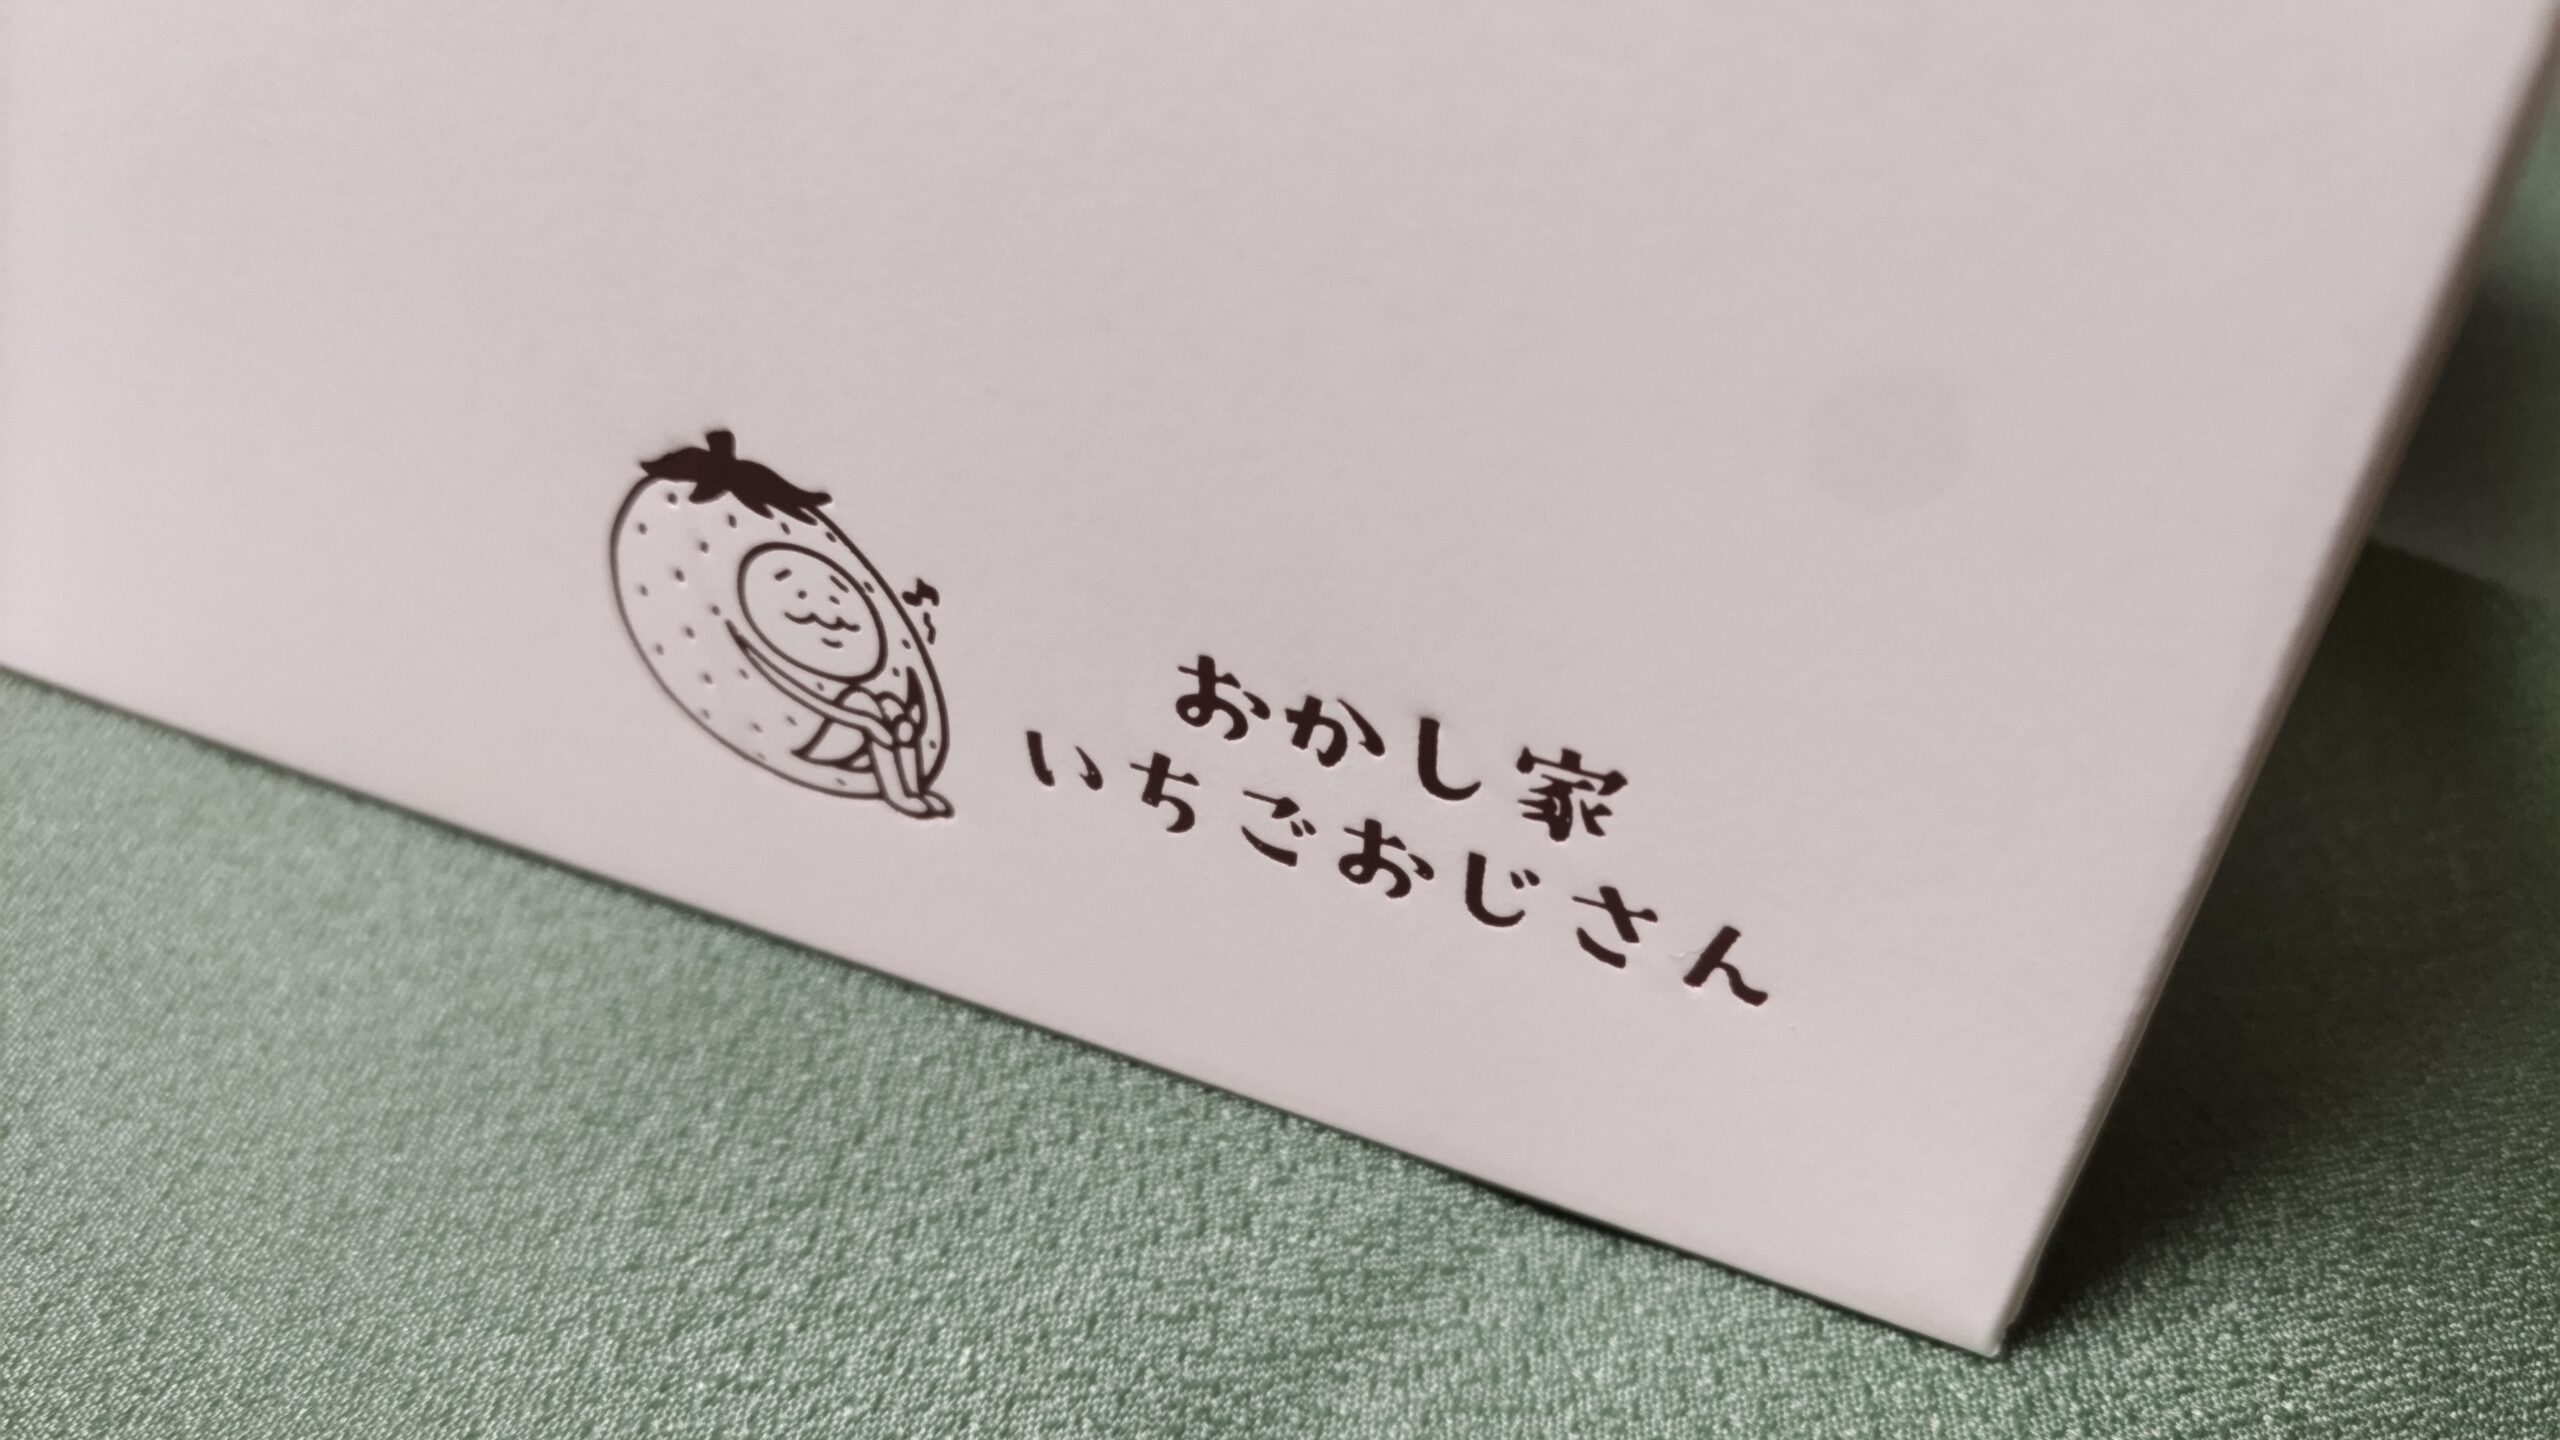 おかし家
いちごおじさん